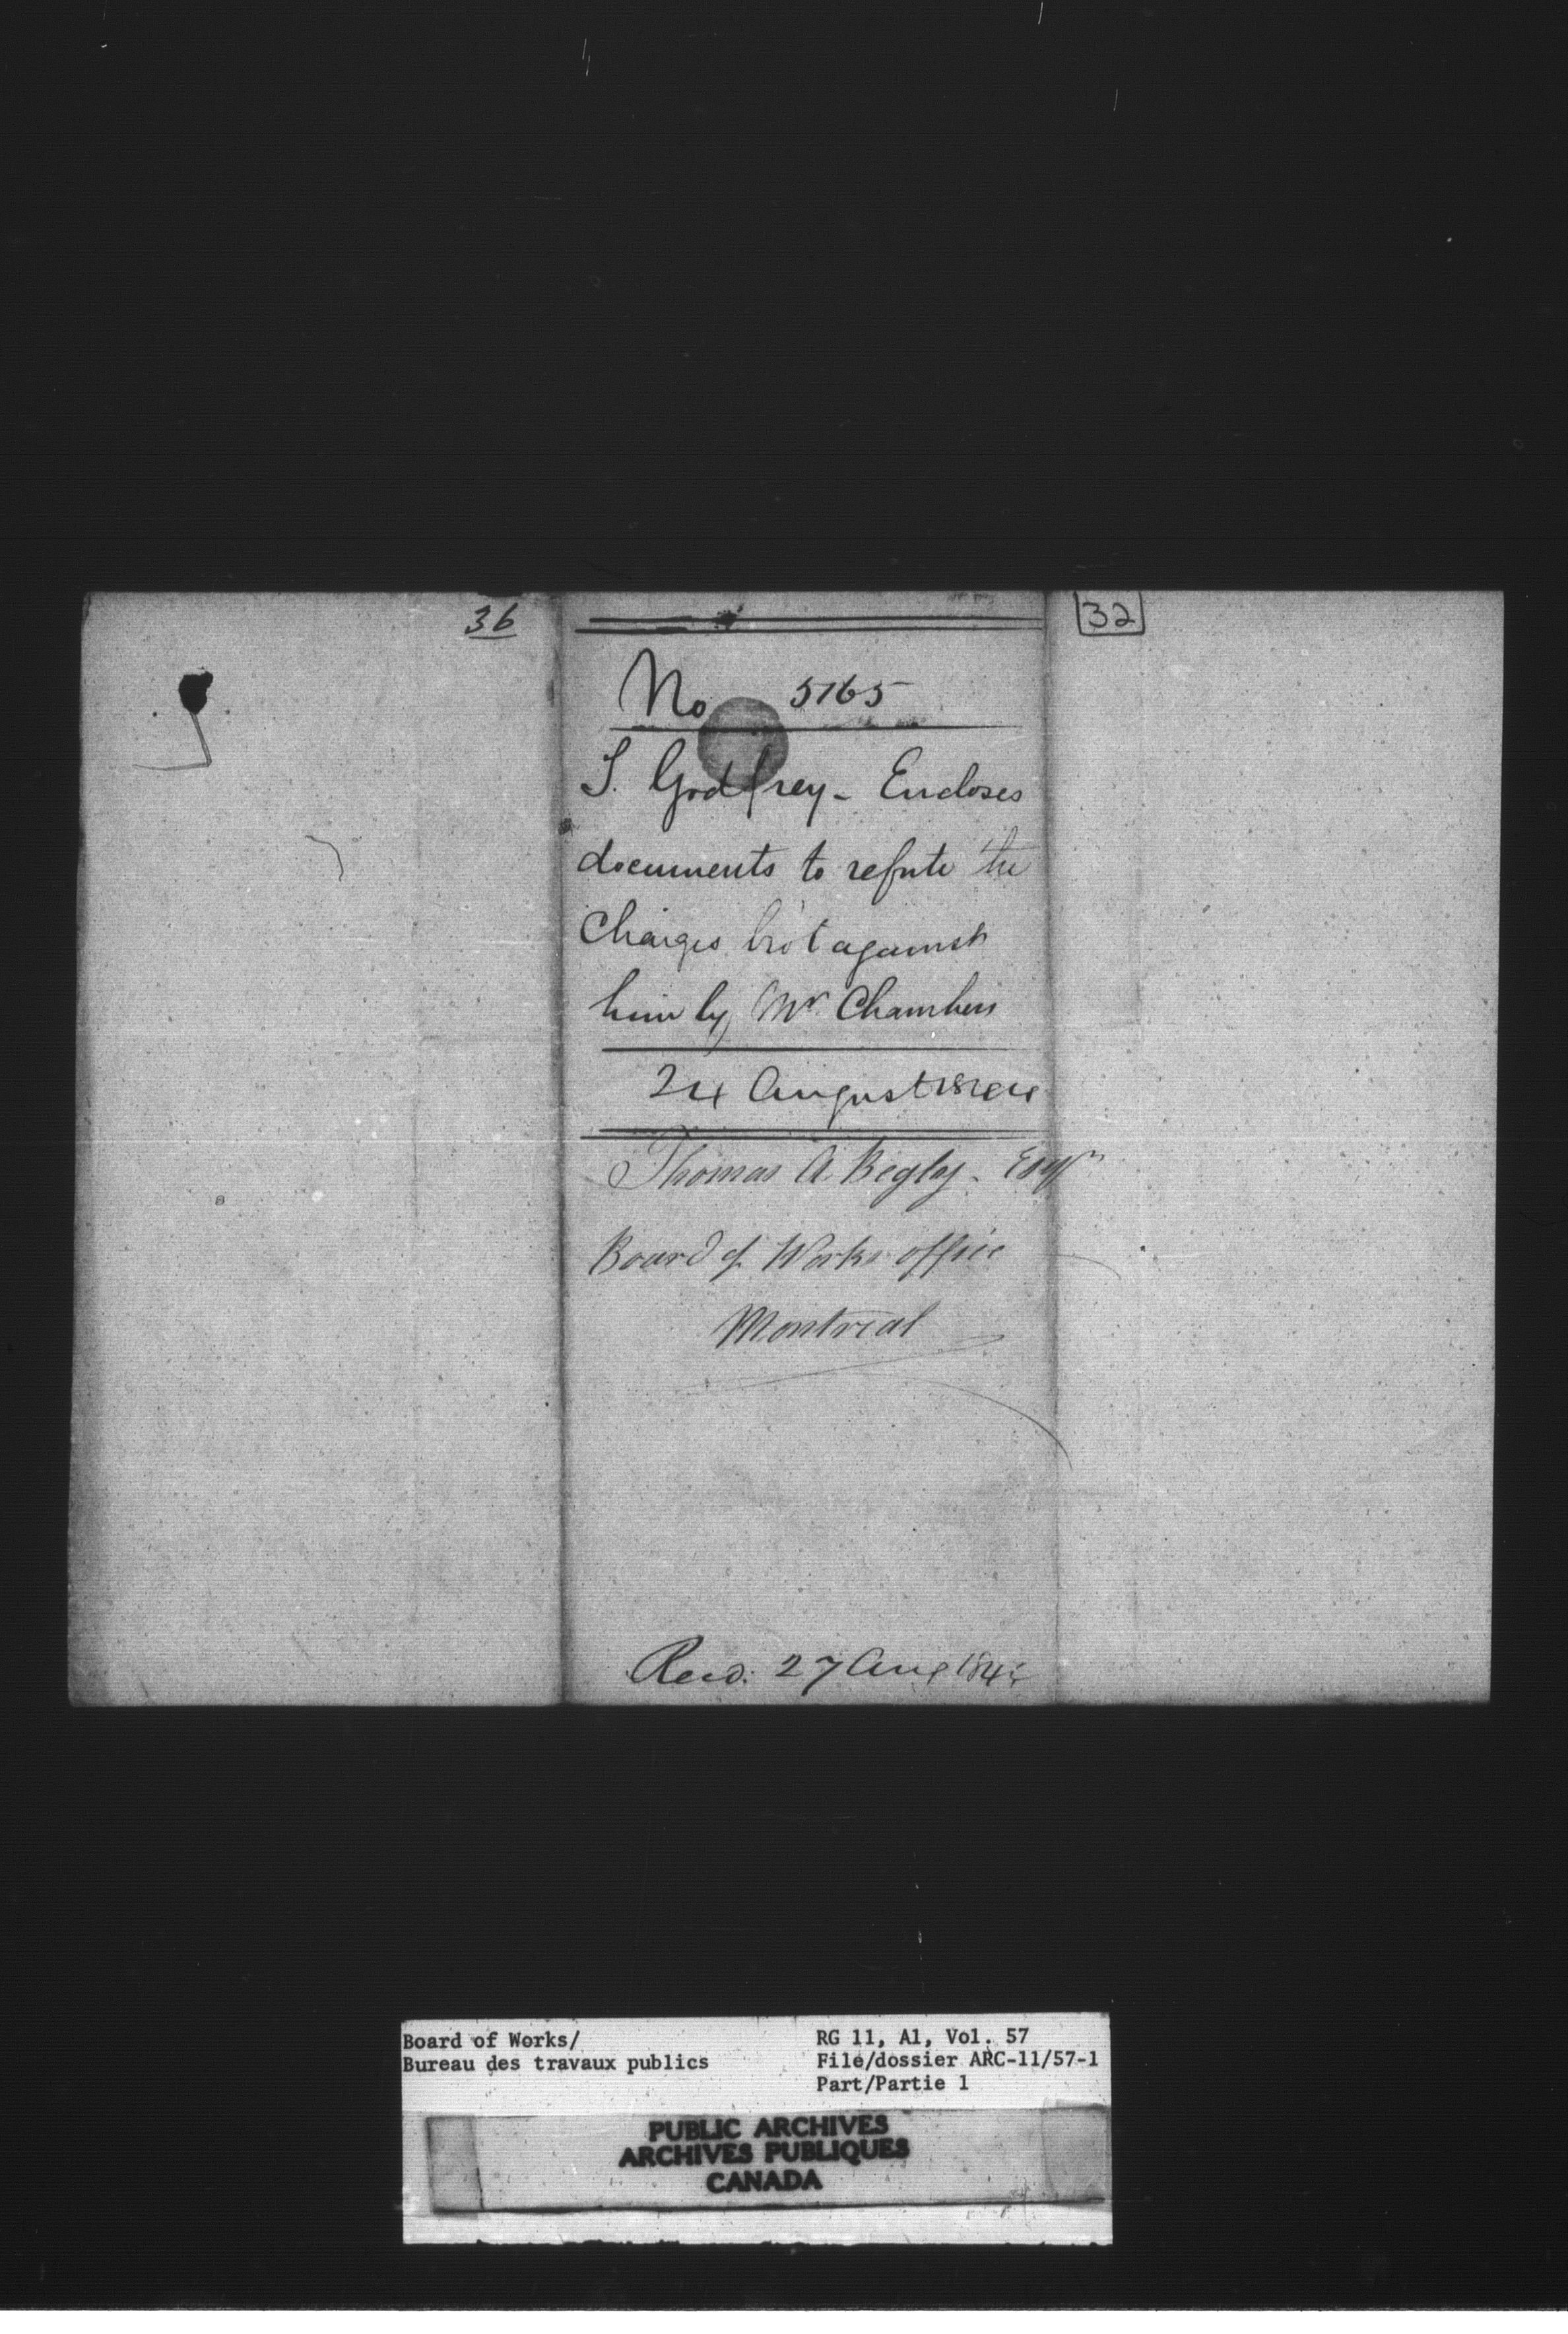 36
32
No 5765
S. Godfrey - Encloses
documents to refute the
Charges bro't against
him by Mr. Chambers
24 August 1844
Thomas A Begley. Esqr
Board of Works office
Montreal
Recd. 27 Aug 184
Board of Works/
Bureau des travaux publics
RG 11, A1, Vol. 57
File/dossier ARC-11/57-1
Part/Partie 1
PUBLIC ARCHIVES
ARCHIVES PUBLIQUES
CANADA